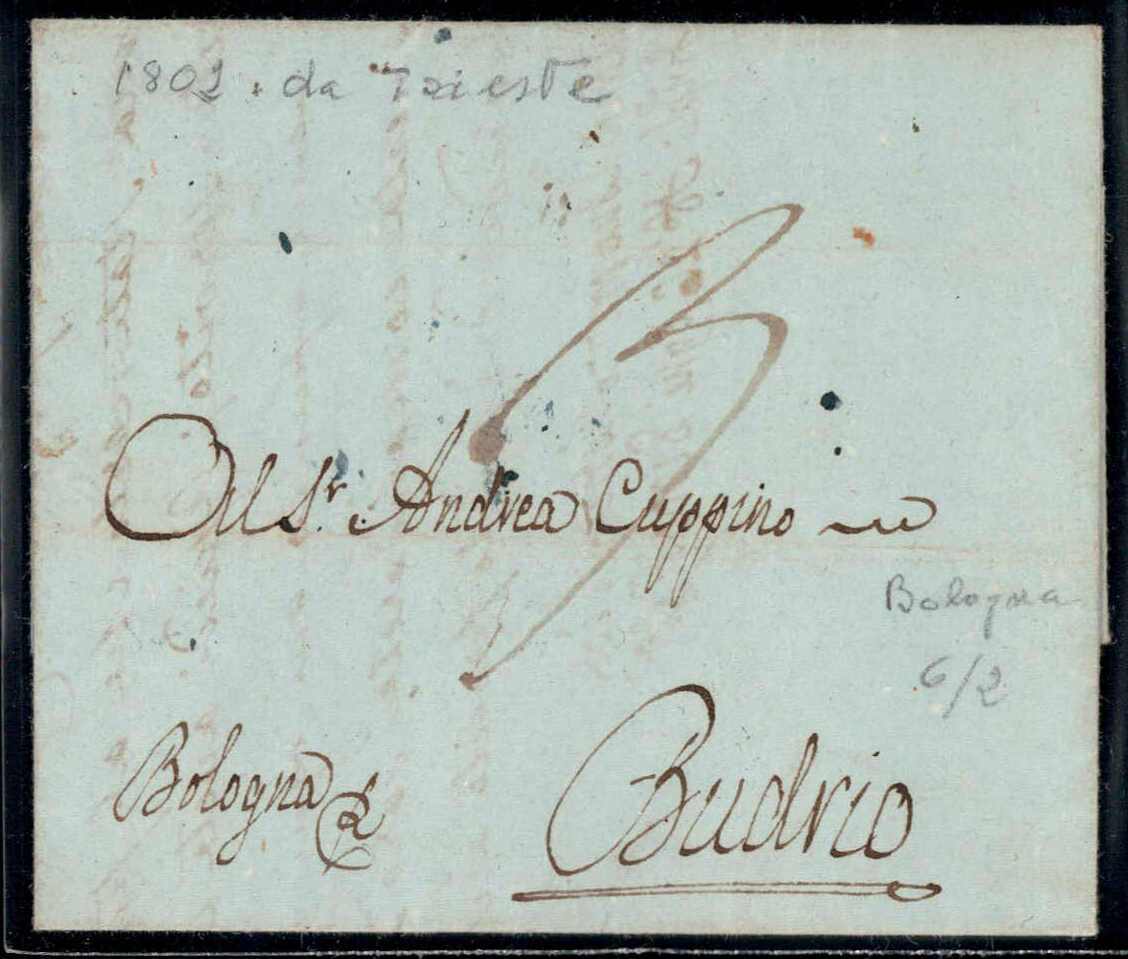 1802. da Trieste
3
Al Sr. Andrea Cuppino
Bologna
6/2
Bologna
Budrio